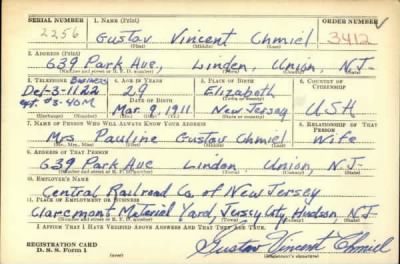 SERIAL NUMBER 1. NAME (Print) ORDER NUMBER
2256 Gustav Vincent Chmiel 3412
(First) (Middle) (Last)
2. ADDRESS (Print)
639 Park Ave., Linden, Union, N.J.
(Number and street or R. F. D. number) (Town) (County) (State)
3. TELEPHONE Business 4. AGE IN YEARS 5. PLACE OF BIRTH 6. COUNTRY OF CITIZENSHIP
Del-3-1122 29 Elizabeth
(Town or county)
DATE OF BIRTH
Ext. #3-40M Mar. 9, 1911 New Jersey USA
(Exchange) (Number) (Mo.) (Day) (Yr.) (State or country)
7. NAME OF PERSON WHO WILL ALWAYS KNOW YOUR ADDRESS 8. RELATIONSHIP OF THAT PERSON
Mrs. Pauline Gustav Chmiel Wife
(Mr., Mrs., Miss) (First) (Middle) (Last)
9. ADDRESS OF THAT PERSON
639 Park Ave Linden Union, N.J.
(Number and street or R. F. D. number) (Town) (County) (State)
10. EMPLOYER'S NAME
Central Railroad Co. of New Jersey
11. PLACE OF EMPLOYMENT OR BUSINESS
Claremont Material Yard, Jersey City, Hudson, N.J.
(Number and street or R. F. D. number) (Town) (County) (State)
I AFFIRM THAT I HAVE VERIFIED ABOVE ANSWERS AND THAT THEY ARE TRUE.
REGISTRATION CARD
D. S. S. Form 1 (over) Gustav Vincent Chmiel
(Registrant's signature)